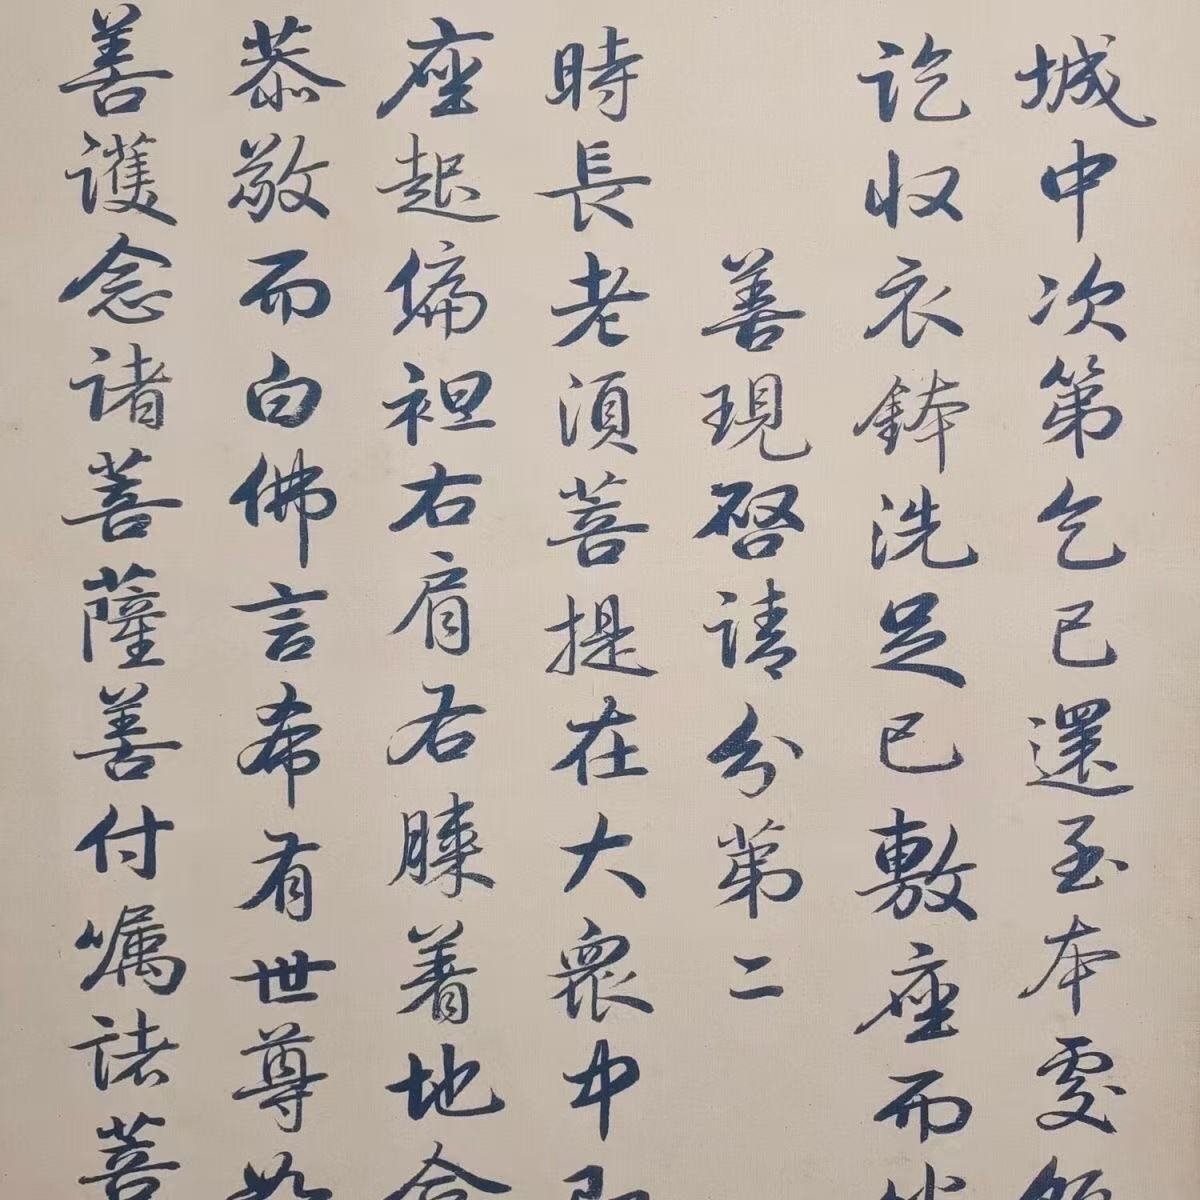 城中次第乞已還至本處飯
訖收衣鉢洗足已敷座而坐
善現啓請分第二
時長老須菩提在大衆中即
座起偏袒右肩右膝着地合
恭敬而白佛言希有世尊如
善護念諸菩薩善付囑諸菩